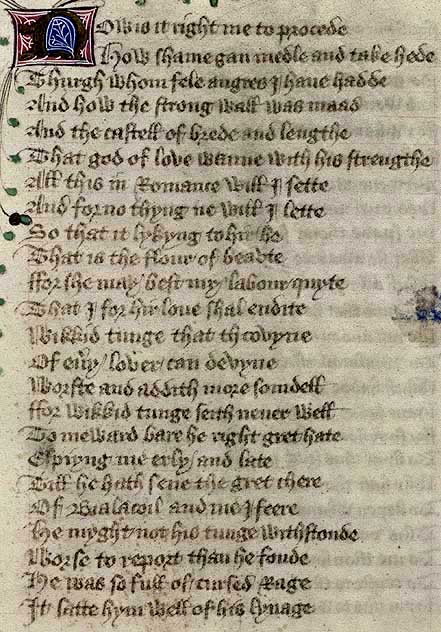 Now is it right me to procede
How shame gan medle and take hede
Thurgh whom fele angres I haue hadde
And how the strong wall was maad
And the castell of brede and lengthe
That god of love wanne with his strengthe
All this in Romance will I sette
And for no thyng ne will I lette
So that it lykyng to hir be
That is the flour of beaute
ffor she may best my labour quyte
That I for hir love shal endite
Wikkid tunge that the covyne
Of euery lover can devyne
Worste and addith more somdell
ffor wikkid tunge seith neuer well
To meward bare he right gret hate
Espiyng me erly and late
Till he hath sene the gret chere
Of Bialacoil and me Ifeere
He myght not his tunge withstonde
Worse to report than he fonde
He was so full of cursed Rage
It satte hym well of his lynage